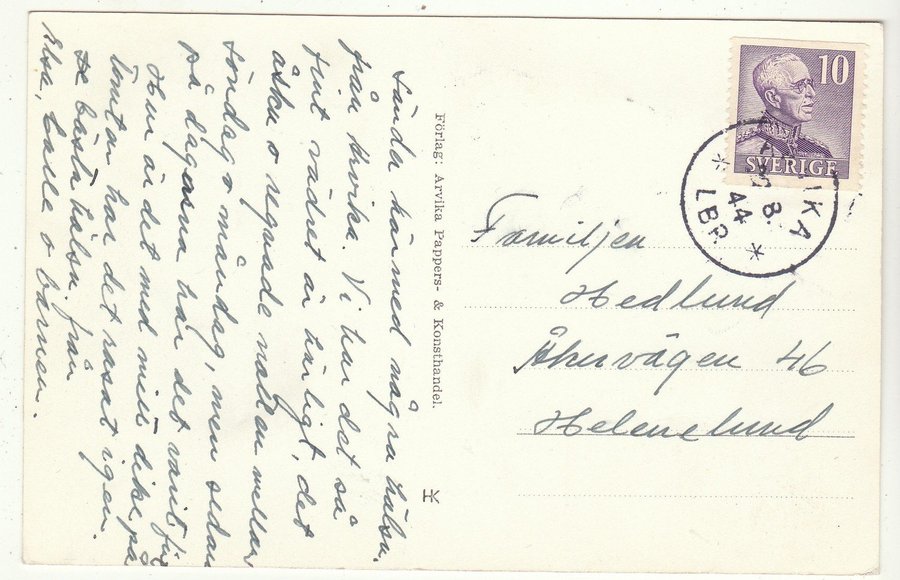 Sända härmed några hälsn.
från Arvika. Vi har det så
fint vädret är härligt, det
åskn o regnade natten mellan
söndag o måndag, men sedan
på dagarna har det varit fint
Hur är det med mitt dike på
tomten har det rasat igen.
De bästa hälsn från
Elsa, Calle o barnen.
Förlag: Arvika Pappers- & Konsthandel.
HK
10
SVERIGE
ARVIKA
8.
44
* LBR *
Familjen
Hedlund
Åkervägen 46
Helenelund